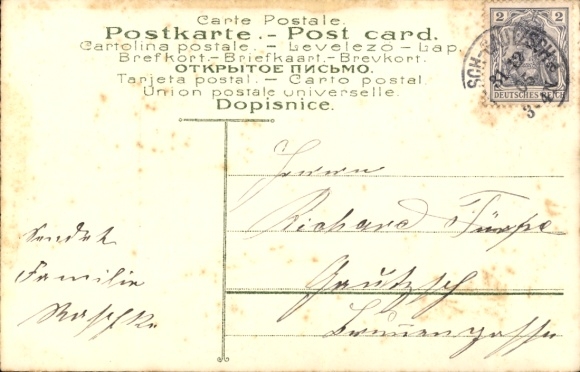 Carte Postale.
Postkarte. - Post card.
Cartolina postale. - Levelezo - Lap.
Brefkort. - Briefkaart. - Brevkort.
ОТКРЫТОЕ ПИСЬМО.
Tarjeta postal. - Carto postal.
Union postale universelle.
Dopisnice.
2 2
DEUTSCHES REICH
31.12
Herrn
Richard
Gautzsch
Brunnengasse
Sendet
Familie
Raschke